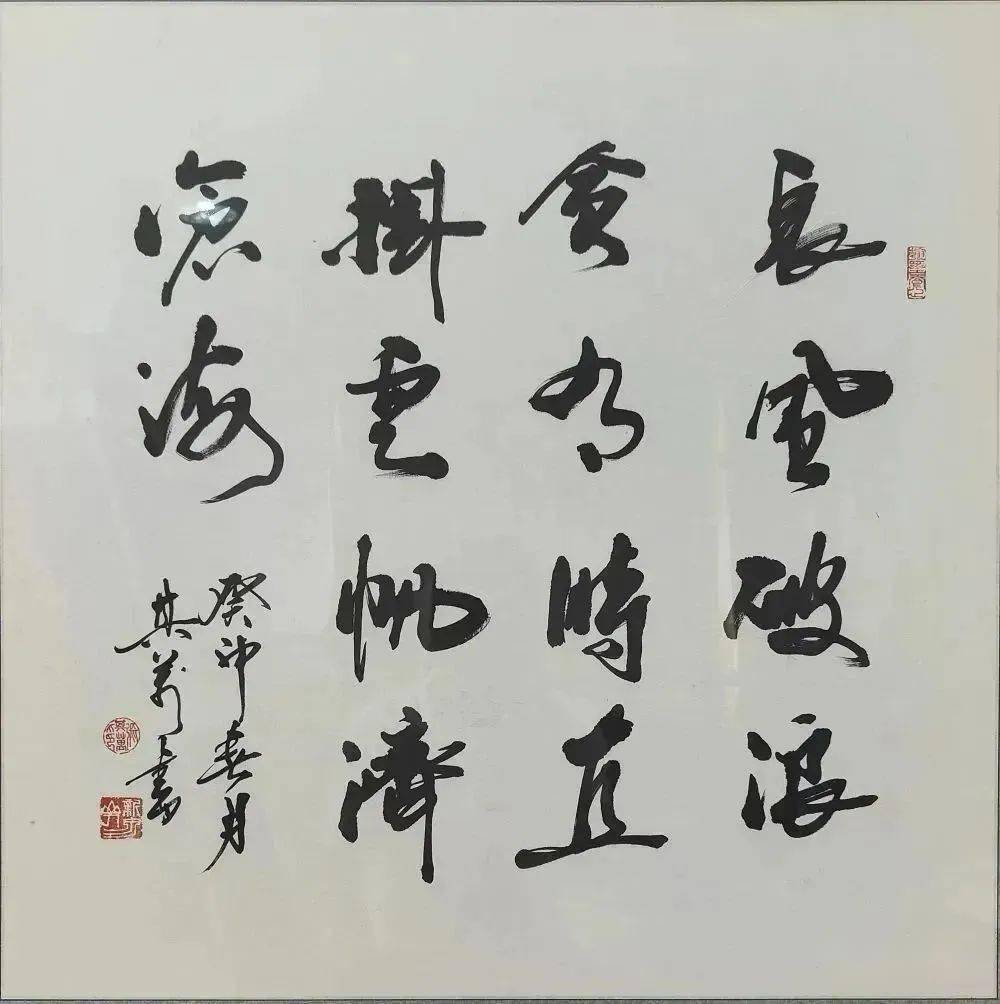 長風破浪
會有時直
掛雲帆濟
滄海
癸卯春月
其萬書